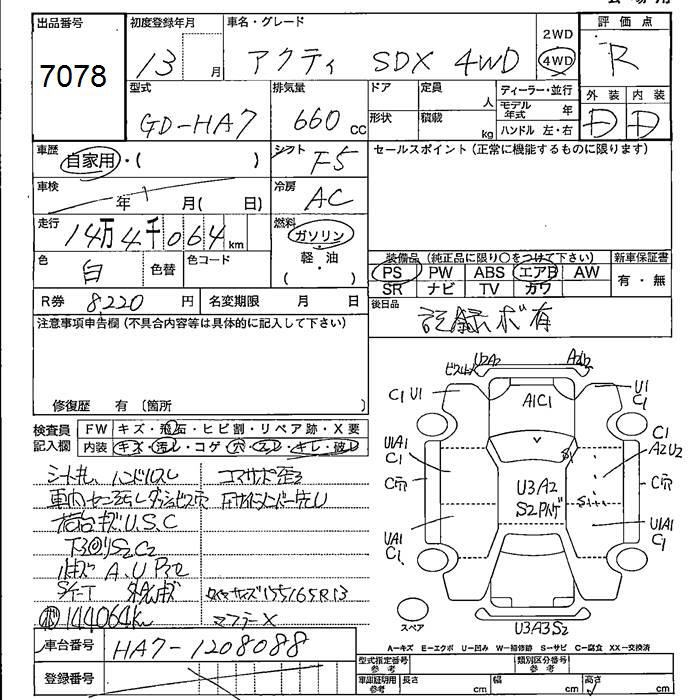 出品番号
7078
初度登録年月
13 月
車名・グレード
アクティ SDX 4WD
2WD
4WD
評価点
R
型式
GD-HA7
排気量
660 cc
ドア
形状
定員
人
積載
kg
ディーラー・並行
モデル年式 年
ハンドル 左・右
外装
内装
D
D
車歴
自家用・( )
シフト
F5
セールスポイント (正常に機能するものに限ります)
車検
年 月( 日)
冷房
AC
走行
14万4千064km
燃料
ガソリン
・
軽・油
( )
色
白
色替
色コード
装備品 (純正品に限り○をつけて下さい)
新車保証書
PS PW ABS エアB AW
SR ナビ TV カワ
有・無
R券 8,220 円
名変期限 月 日
後日品
記録ボ有
注意事項申告欄 (不具合内容等は具体的に記入して下さい)
修復歴 有 〔箇所 〕
検査員
記入欄
FW キズ・飛石・ヒビ割・リペア跡・X要
内装 キズ・汚レ・コゲ・穴・スレ・キレ・破レ
シート
ハンドルスレ
荷台キズU.S.C
A.U
144064k
タイヤサイズ155/165R13
マフラーX
車台番号
HA7-1208088
登録番号
U2A2
A2U2
C1 U1
A1C1
U1
C1
U1A1
C1
C1
A2U2
C穴
U3A2
S2
S1
S1
C穴
UA1
C1
U1A1
C1
スペア
U3A3S2
A-キズ E-エクボ U-凹み W-補修跡 S-サビ C-腐食 XX-交換済
型式指定番号
参考
類別区分番号
参考
車庫証明用
参考
長さ cm
幅 cm
高さ cm